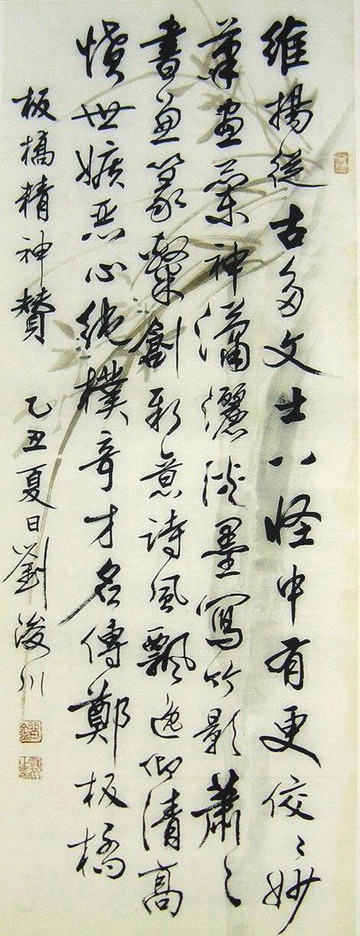 維揚從古多文士八怪中有更佼〻妙
筆畫蘭神瀟灑淡墨寫竹影蕭〻
書兼篆隸創新意詩風飄逸仰清高
憤世嫉惡心純樸奇才名傳鄭板橋
板橋精神贊 乙丑夏日劉浚川